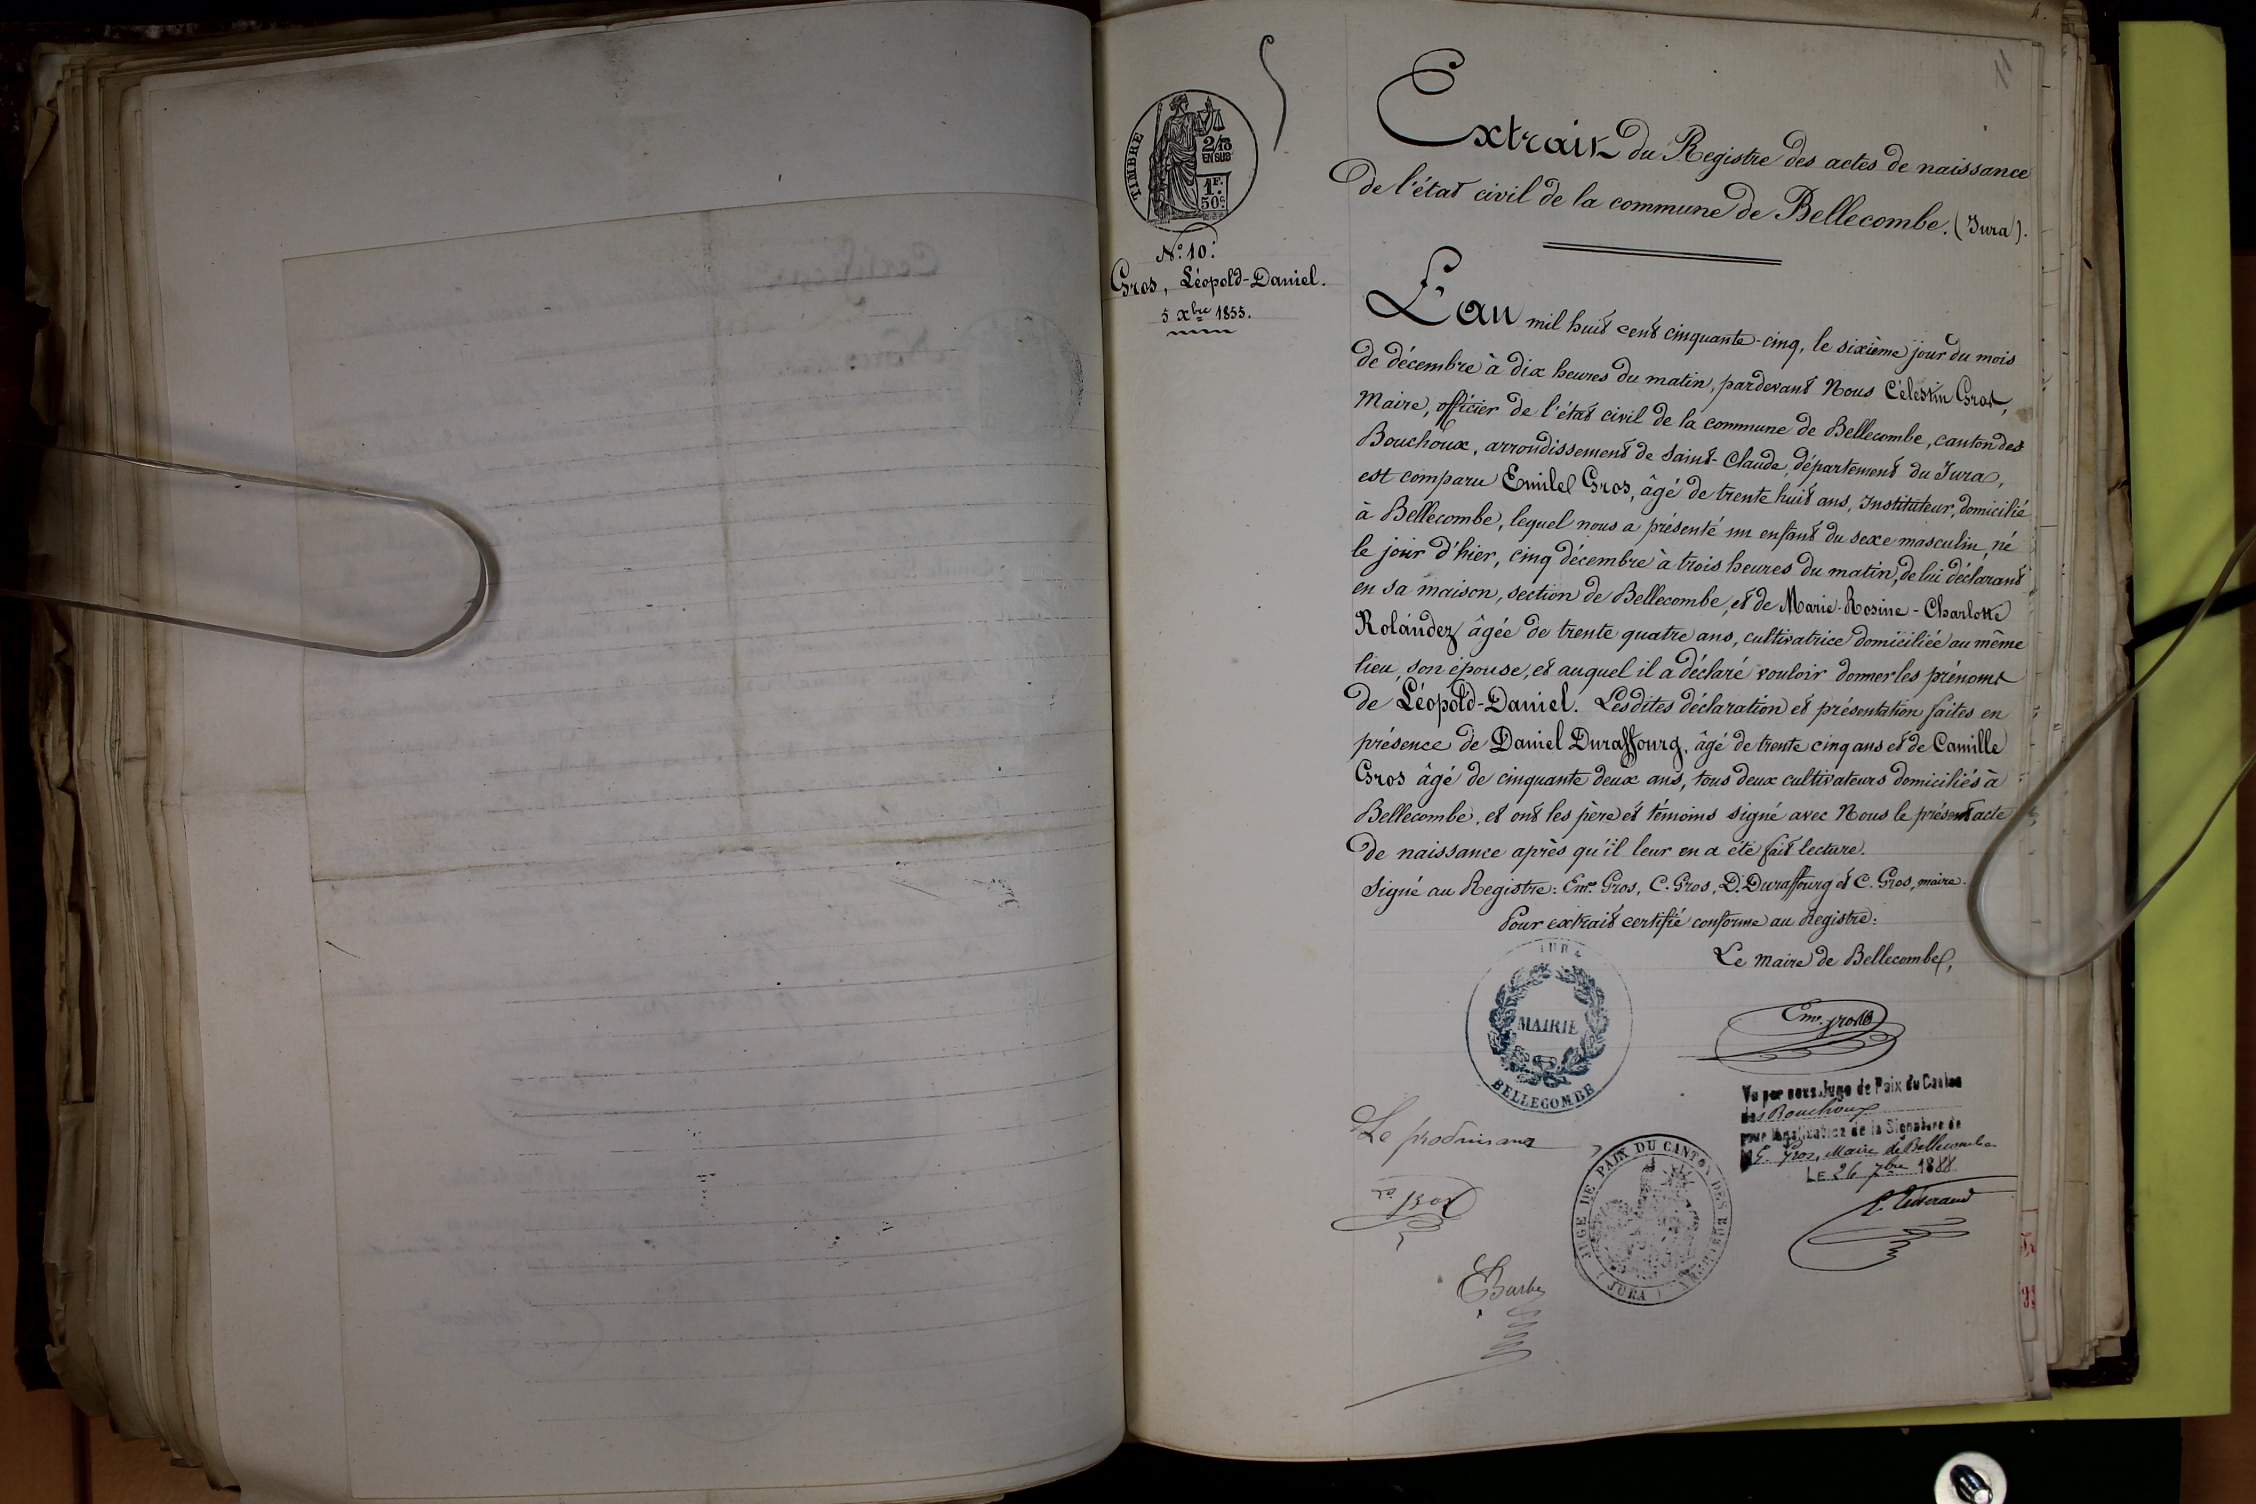 11
TIMBRE
2/10
EN SUS
1F.
50c.
N° 10.
Gros, Léopold-Daniel.
5 Xbre 1855.
Extrait du Registre des actes de naissance
de l'état civil de la commune de Bellecombe. (Jura).
L'an mil huit cent cinquante-cinq, le sixième jour du mois
de décembre à dix heures du matin, pardevant Nous Célestin Gros,
Maire, officier de l'état civil de la commune de Bellecombe, canton des
Bouchoux, arrondissement de Saint-Claude, département du Jura,
est comparu Emile Gros, âgé de trente huit ans, Instituteur, domicilié
à Bellecombe, lequel nous a présenté un enfant du sexe masculin, né
le jour d'hier, cinq décembre à trois heures du matin, de lui déclarant
en sa maison, section de Bellecombe, et de Marie-Rosine-Charlotte
Rolandez âgée de trente quatre ans, cultivatrice domiciliée au même
lieu, son épouse, et auquel il a déclaré vouloir donner les prénoms
de Léopold-Daniel. Lesdites déclaration et présentation faites en
présence de Daniel Duraffourg, âgé de trente cinq ans et de Camille
Gros âgé de cinquante deux ans, tous deux cultivateurs domiciliés à
Bellecombe, et ont les père et témoins signé avec Nous le présent acte
de naissance après qu'il leur en a été fait lecture.
Signé au Registre: Em. Gros, C. Gros, D. Duraffourg et C. Gros, maire.
Pour extrait certifié conforme au Registre:
Le Maire de Bellecombe,
JURA
MAIRIE
BELLECOMBE
Em. gros
Vu par nous Juge de Paix du Canton
des Bouchoux
pour légalisation de la Signature de
M E. Gros, Maire de Bellecombe
LE 26 7bre 1888
Le produisant
JUGE DE PAIX DU CANTON DES BOUCHOUX
(JURA)
Barbe